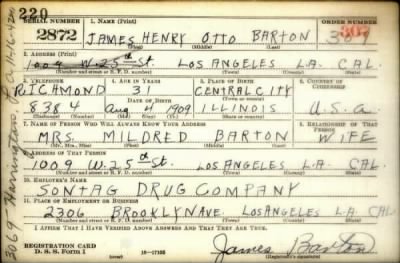 220
SERIAL NUMBER 1. NAME (Print) ORDER NUMBER
2872 JAMES HENRY OTTO BARTON 307
(First) (Middle) (Last)
2. ADDRESS (Print)
1009 W. 25th St. LOS ANGELES L.A. CAL.
(Number and street or R. F. D. number) (Town) (County) (State)
3. TELEPHONE 4. AGE IN YEARS 5. PLACE OF BIRTH 6. COUNTRY OF CITIZENSHIP
RICHMOND 31 CENTRAL CITY
DATE OF BIRTH (Town or county)
8384 Aug 4 1909 ILLINOIS U.S.A
(Mo.) (Day) (Yr.) (State or country)
7. NAME OF PERSON WHO WILL ALWAYS KNOW YOUR ADDRESS 8. RELATIONSHIP OF THAT PERSON
MRS. MILDRED BARTON WIFE
(Mr., Mrs., Miss) (First) (Middle) (Last)
9. ADDRESS OF THAT PERSON
1009 W. 25th St. LOS ANGELES L.A. CAL
(Number and street or R. F. D. number) (Town) (County) (State)
10. EMPLOYER'S NAME
SONTAG DRUG COMPANY
11. PLACE OF EMPLOYMENT OR BUSINESS
2306 BROOKLYN AVE. LOS ANGELES L.A. CAL
(Number and street or R. F. D. number) (Town) (County) (State)
I AFFIRM THAT I HAVE VERIFIED ABOVE ANSWERS AND THAT THEY ARE TRUE.
REGISTRATION CARD
D. S. S. Form 1 16-17105
(over) (Registrant's signature)
James Barton
3069